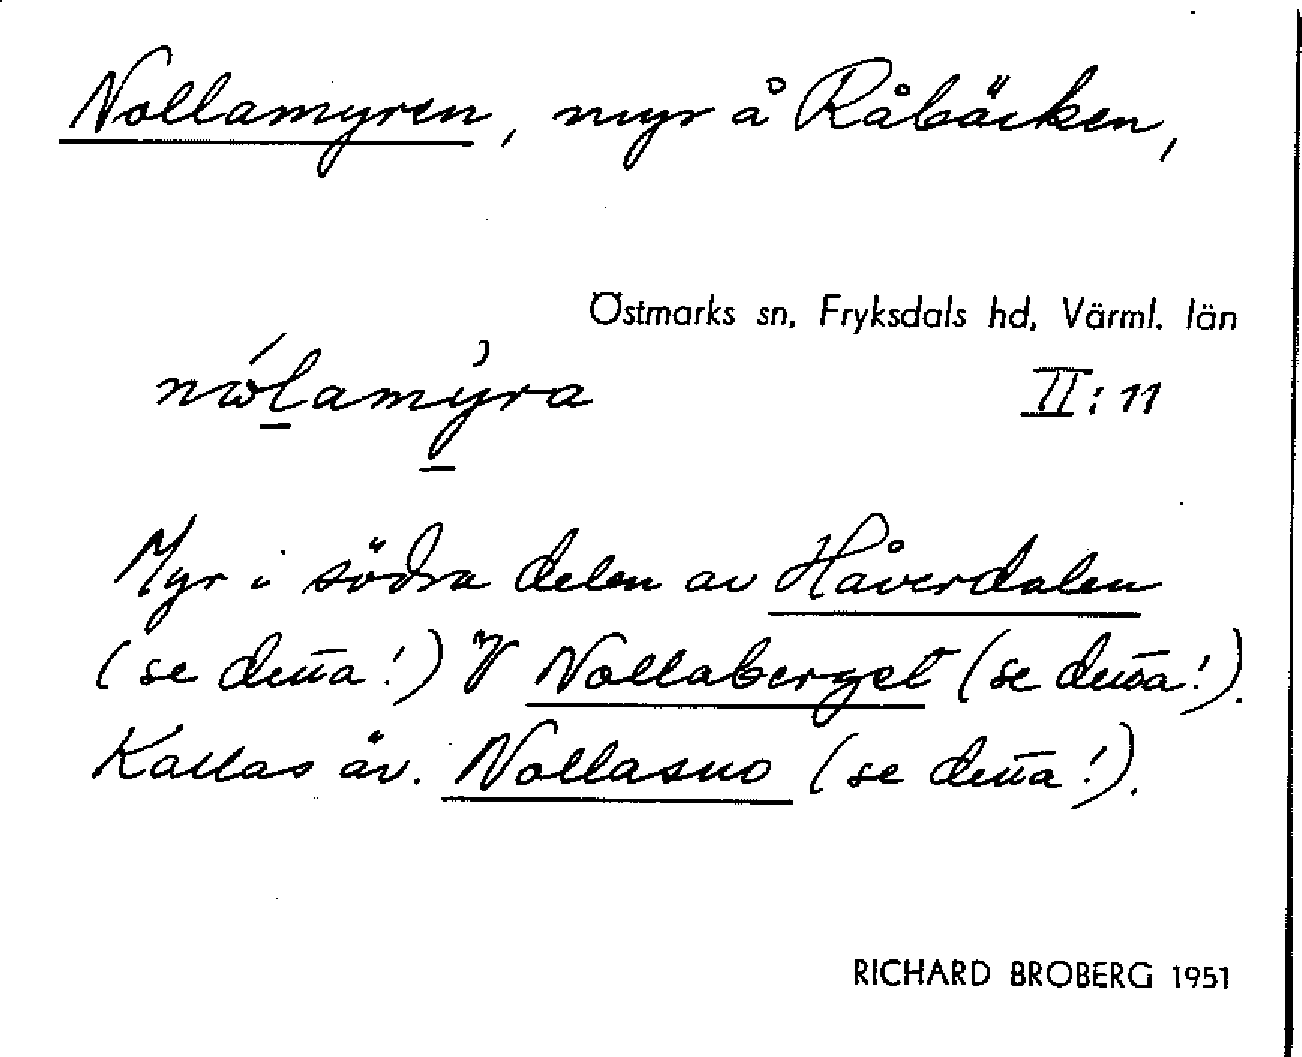 Nollamyren, myr å Råbäcken,
Östmarks sn, Fryksdals hd, Värml. län
nώlamỳ̠ra
II: 11
Myr i södra delen av Håverdalen
(se detta!) V Nollaberget (se detta!).
Kallas äv. Nollasuo (se detta!).
RICHARD BROBERG 1951